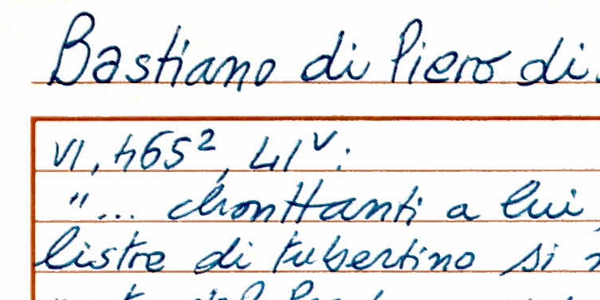 Bastiano di Piero di
VI, 465², 41ᵛ:
"... chonttanti a lui
listre di tubertino si